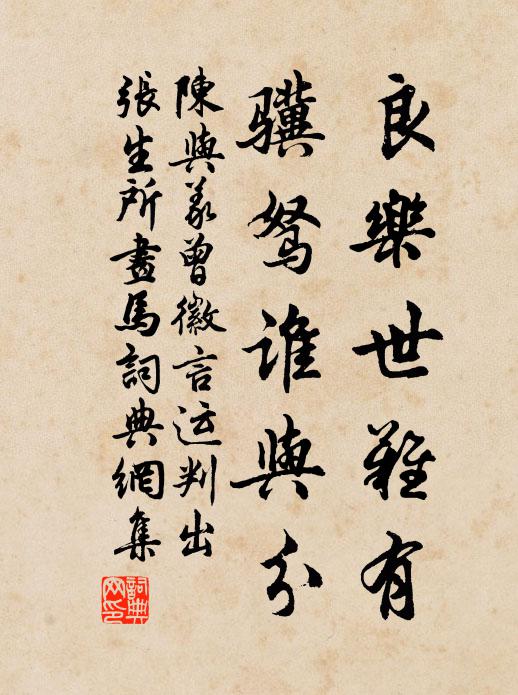 良樂世難有
驥駑誰與分
陳與義曾徽言运判出
張生所畫馬詞典網集
詞典网印